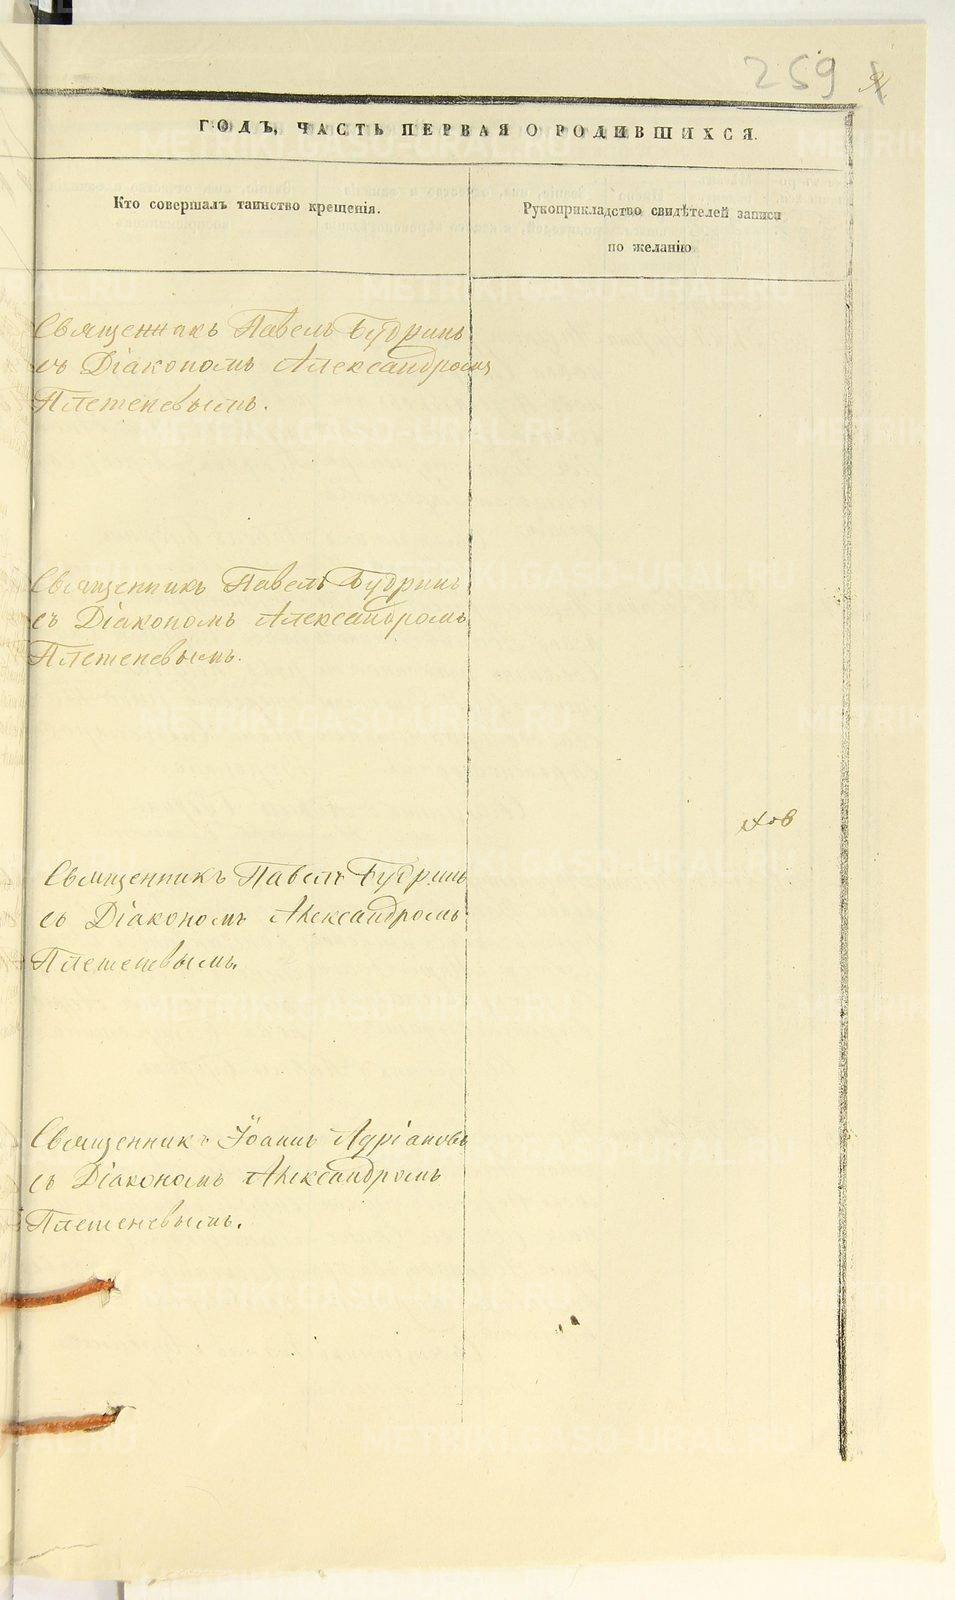 259
ГОДЪ, ЧАСТЬ ПЕРВАЯ О РОДИВШИХСЯ.
Кто совершалъ таинство крещенія.
Рукоприкладство свидѣтелей записи
по желанію
Священникъ Павелъ Будринъ
съ Діакономъ Александромъ
Плетеневымъ.
Священникъ Павелъ Будринъ
съ Діакономъ Александромъ
Плетеневымъ.
Священникъ Павелъ Будринъ
съ Діакономъ Александромъ
Плетеневымъ.
Священникъ Іоаннъ Адріановъ
съ Діакономъ Александромъ
Плетеневымъ.
METRIKI.GASO-URAL.RU